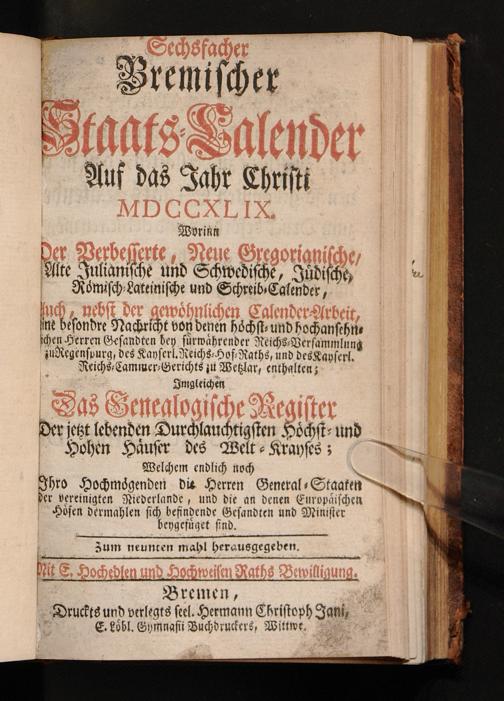 Sechsfacher
Bremischer
Staats-Calender
Auf das Jahr Christi
MDCCXLIX.
Worinn
Der Verbesserte, Neue Gregorianische,
Alte Julianische und Schwedische, Jüdische,
Römisch-Lateinische und Schreib-Calender,
Auch, nebst der gewöhnlichen Calender-Arbeit,
eine besondre Nachricht von denen höchst- und hochansehn-
lichen Herren Gesandten bey fürwährender Reichs-Versammlung
zu Regenspurg, des Kayserl. Reichs-Hof-Raths, und des Kayserl.
Reichs-Cammer-Gerichts zu Wetzlar, enthalten;
Imgleichen
Das Genealogische Register
Der jetzt lebenden Durchlauchtigsten Höchst- und
Hohen Häuser des Welt-Krayses;
Welchem endlich noch
Ihro Hochmögenden die Herren General-Staaten
der vereinigten Niederlande, und die an denen Europäischen
Höfen dermahlen sich befindende Gesandten und Minister
beygefüget sind.
Zum neunten mahl herausgegeben.
Mit E. Hochedlen und Hochweisen Raths Bewilligung.
Bremen,
Druckts und verlegts seel. Hermann Christoph Jani,
E. Löbl. Gymnasii Buchdruckers, Wittwe.